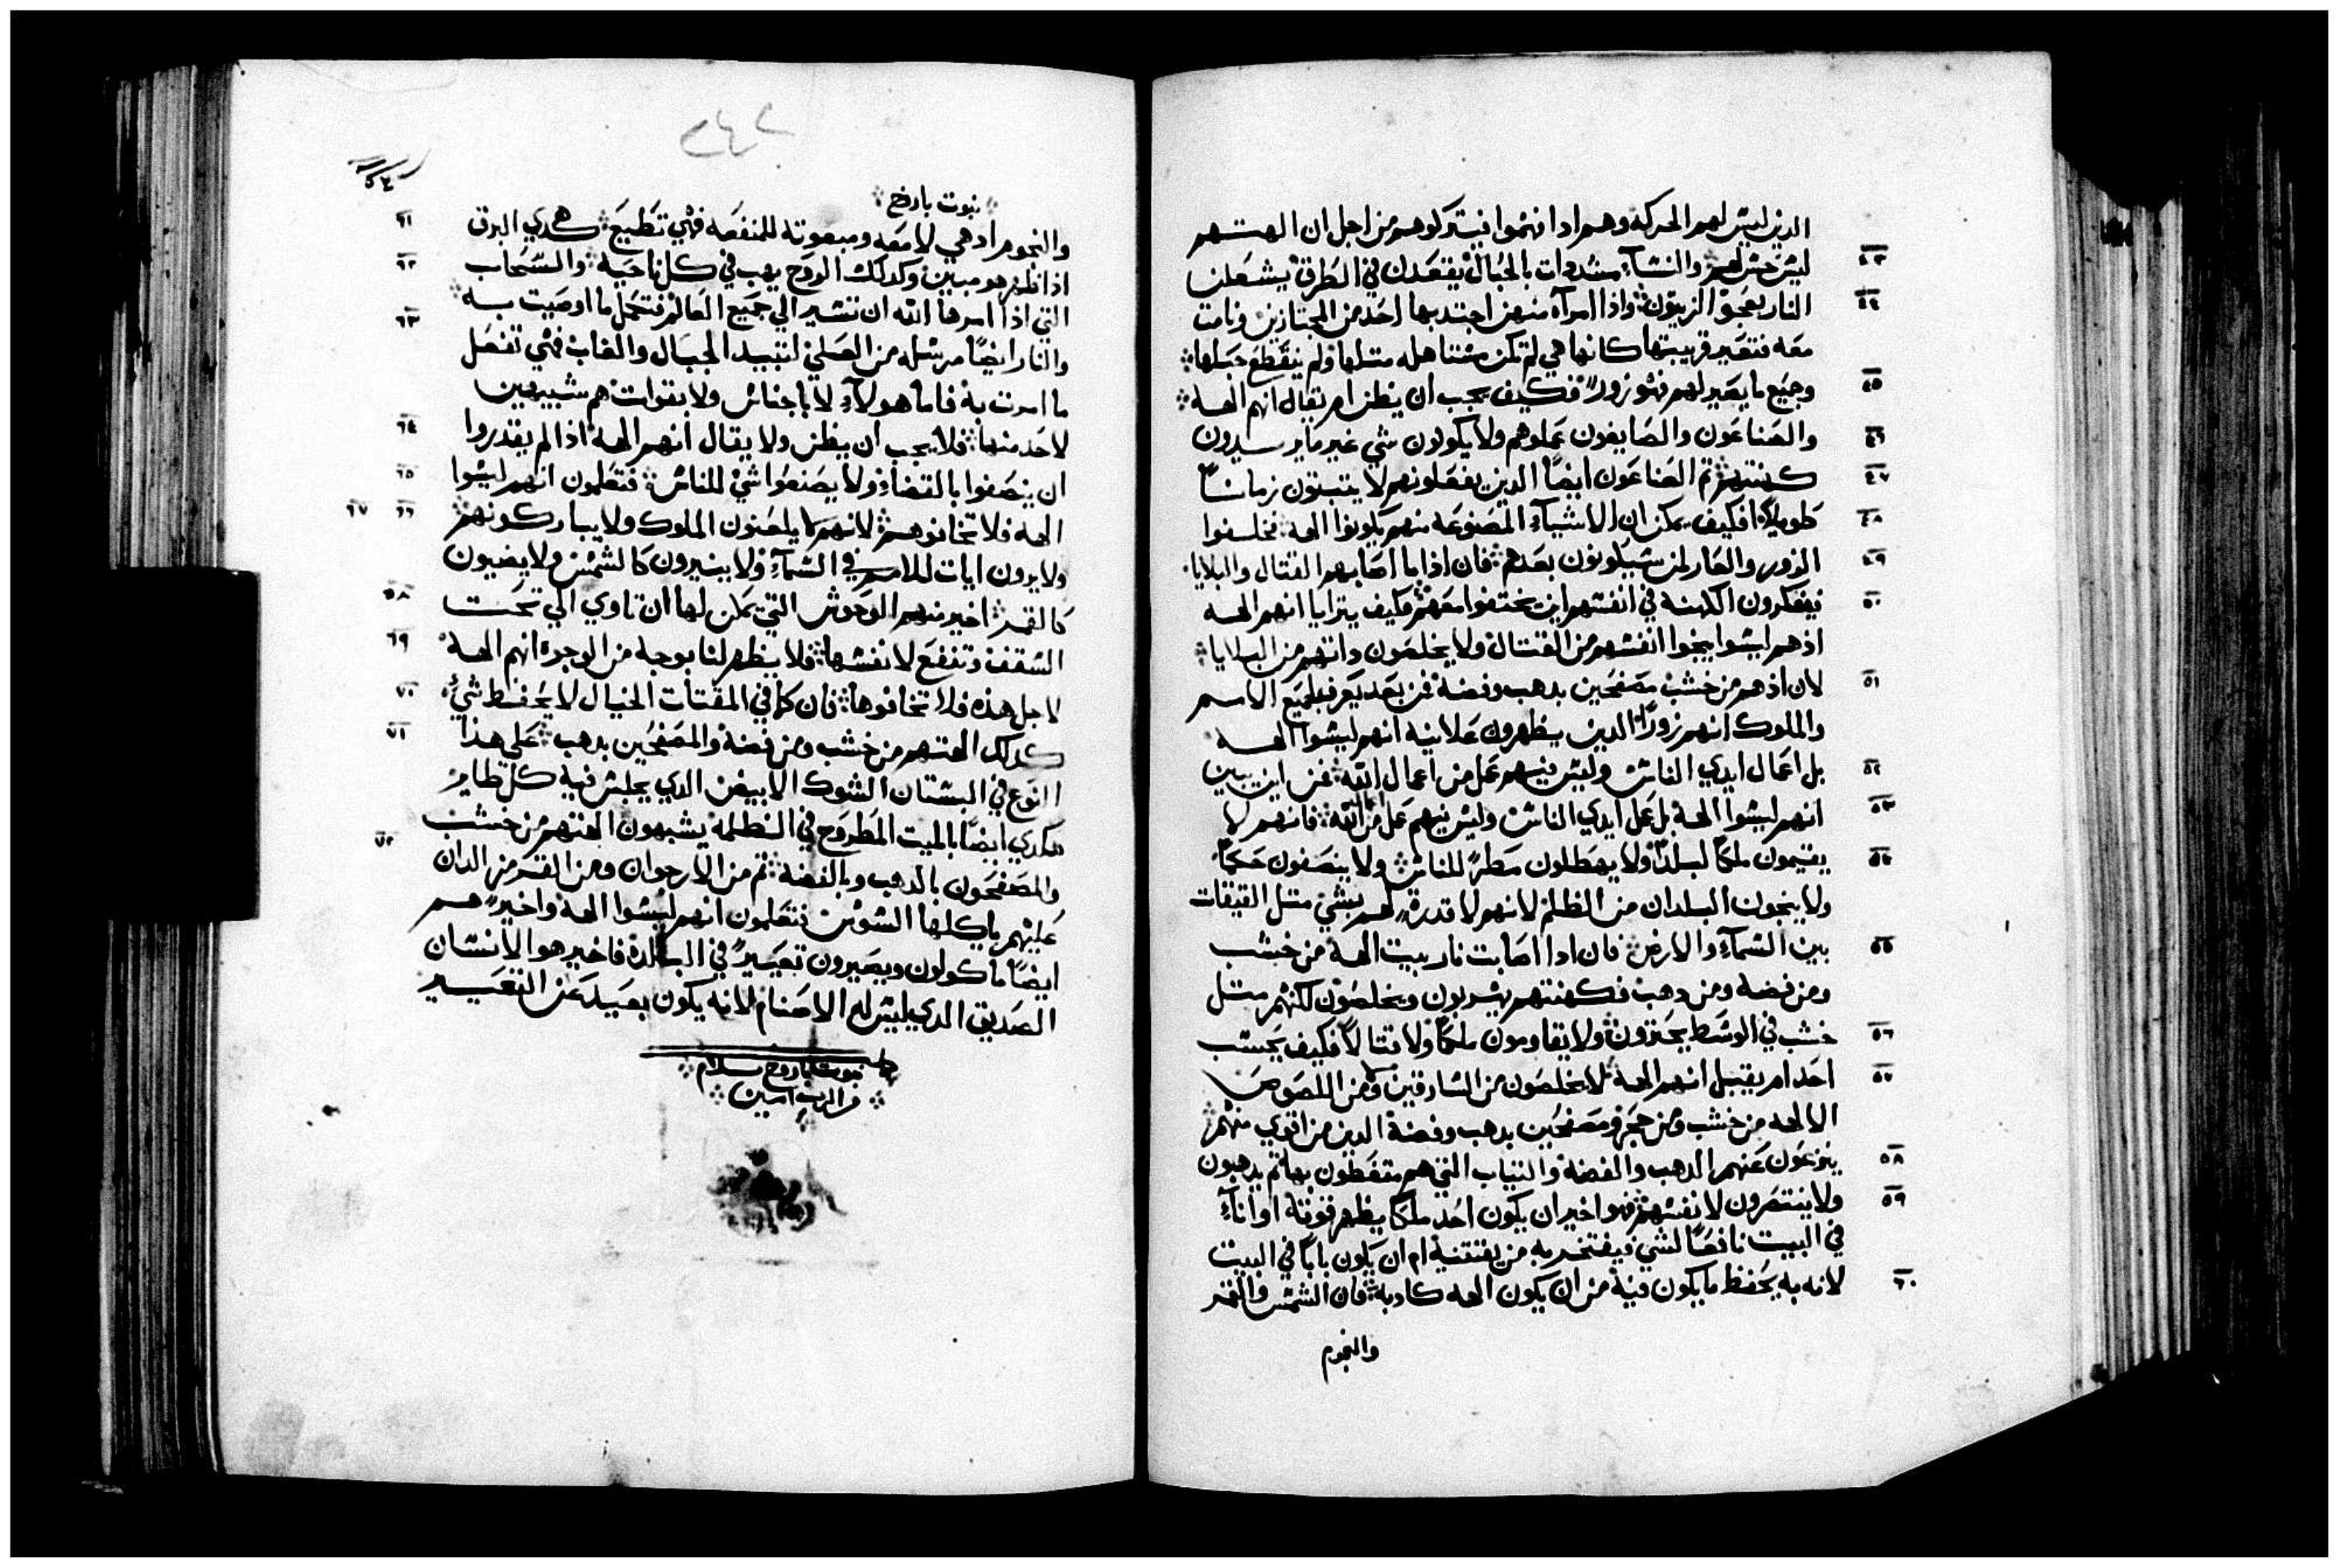 الدين ليس لهم الحركة وهم ادا فهموا فيتركوهم من اجل ان الهتهم
٤٣
ليس حس لهم والنسآء مشدودات بالحبال يقعدن في الطرق يشعلن
٤٤
النار بعجو الزيتون واذا امرآة منهن اجتدبها احد من المجتازين ونامت
معه فتعير قريبتها كانها هي لم تكن مستاهله متلها ولم ينقطع حبلها
٤٥
وجميع ما يصير لهم فهو زور فكيف يجب ان يظن ام يقال انهم الهة
٤٦
والصناعون والصايغون عملوهم ولا يكونون شي غير ما يريدون
٤٧
كهنتهم تم الصناعون ايضا الدين يفعلونهم لا يتبتون زمانا
٤٨
طويلا فكيف يمكن ان الاشيآء المصنوعة منهم يكونوا الهة فخلفوا
٤٩
الزور والعار لمن سيكونون بعدهم فان اذا ما اصابهم القتال والبلايا
٥٠
فيفكرون الكهنة في انفسهم اين يختفوا معهم فكيف يترايا انهم الهة
اذ هم ليسوا ينجوا انفسهم من القتال ولا يخلصون داتهم من البلايا
٥١
لان اذ هم من خشب مصفحين بدهب وفضة فمن بعد يعرف جميع الامم
والملوك انهم زورا الدين يظهرون علانية انهم ليسوا الهة
٥٢
بل اعمال ايدي الناس وليس فيهم عمل من اعمال الله فمن اين يبين
٥٣
انهم ليسوا الهة بل عمل ايدي الناس وليس فيهم عمل من الله فانهم لا
٥٤
يقيمون ملكا لبلد ولا يهطلون مطر للناس ولا ينصفون حكما
ولا ينجون البلدان من الظلم لانهم لا قدرة لهم بشي متل القيقات
٥٥
بين السمآء والارض فان ادا اصابت نار بيت الهة من خشب
ومن فضة ومن دهب فكهنتهم يهربون ويخلصون لكنهم متل
٥٦
خشب في الوسط يحترون ولا يقاومون ملكا ولا قتالا فكيف يحسب
٥٧
احد ام يقبل انهم الهة لا يخلصون من السارقين ومن اللصوص
الالهه من خشب ومن حجر ومصفحين بدهب وفضة الدين من اقوي منهم
٥٨
ينزعون عنهم الدهب والفضة والتياب التي هم متغطون بها تم يدهبون
٥٩
ولا ينتصرون لانفسهم فهو اخير ان يكون احد ملكا يظهر قوته او انآء
في البيت نافعا لشي فيفتخر به من يقتنية ام ان يكون بابا في البيت
٦٠
لانه به يحفظ ما يكون فية من ان يكون الهه كادبة فان الشمس والقمر
والنجوم
٢٤٢
نبوت باروخ
٦١
والنجوم اد هي لامعه ومبعوته للمنفعه فهي تطيع هكدي البرق
٦٢
اذا ظهر هو مبين وكدلك الروح يهب في كل ناحية والسحاب
التي اذا امرها الله ان تسير الي جميع العالم فتكمل ما اوصيت به
٦٣
والنار ايضا مرسله من العلي لتبيد الجبال والغاب فهي تفعل
ما امرت به فاما هولآء لا باجناس ولا بقوات هم شبيهين
٦٤
لاحد منها فلا يجب ان يظن ولا يقال انهم الهة اذا لم يقدروا
٦٥
ان ينصفوا بالقضاء ولا يصنعوا شي للناس فتعلمون انهم ليسوا
٦٦ ٦٧
الهه فلا تخافوهم لانهم لا يلعنون الملوك ولا يباركونهم
ولا يرون ايات للامم في السمآء ولا ينيرون كالشمس ولا يضيون
٦٨
كالقمر اخير منهم الوحوش التي يمكن لها ان تاوي الي تحت
٦٩
السقف وتنفع لانفسها فلا يظهر لنا بوجه من الوجوه انهم الهة
٧٠
لاجل هذه فلا تخافوها فان كما في المقتات الخيال لا يحفظ شي
٧١
كدلك الهتهم من خشب ومن فضة والمصفحين بدهب علي هذا
النوع في البستان الشوك الابيض الدي يجلس فية كل طاير
هكدي ايضا بالميت المطروح في الظلمة يشبهون الهتهم من خشب
٧٢
والمصفحون بالدهب وبالفضة تم من الارجوان ومن القرمز الدان
عليهم ياكلها السوس فتعلمون انهم ليسوا الهة واخير هم
ايضا ماكولون ويصيرون تعيير في البلدة فاخير هوا الانسان
الصديق الدي ليس له الاصنام لانه يكون بعيد عن التعيير
نبوت باروخ بسلام
من الرب امين